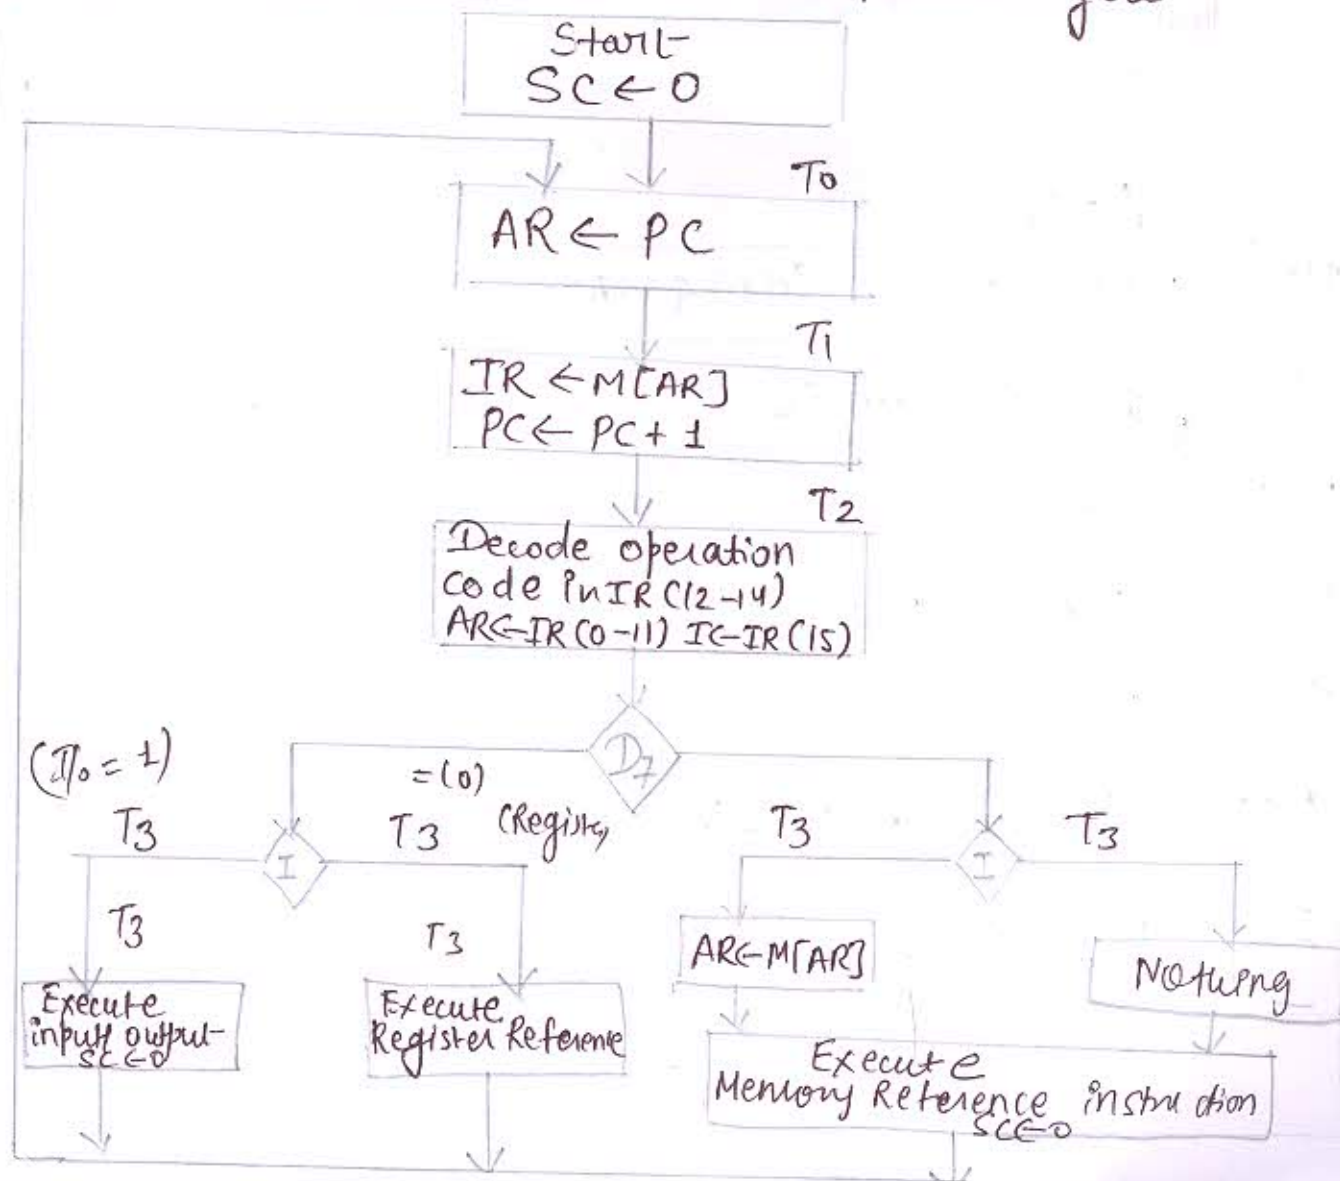 Start
SC ← 0
T0
AR ← PC
T1
IR ← M[AR]
PC ← PC + 1
T2
Decode operation
code in IR (12-14)
AR ← IR (0-11) I ← IR (15)
D7
(I/o = 1)
= (0)
(Register)
T3
I
T3
T3
I
T3
T3
T3
AR ← M[AR]
Nothing
Execute
input output
SC ← 0
Execute
Register Reference
Execute
Memory Reference instruction
SC ← 0